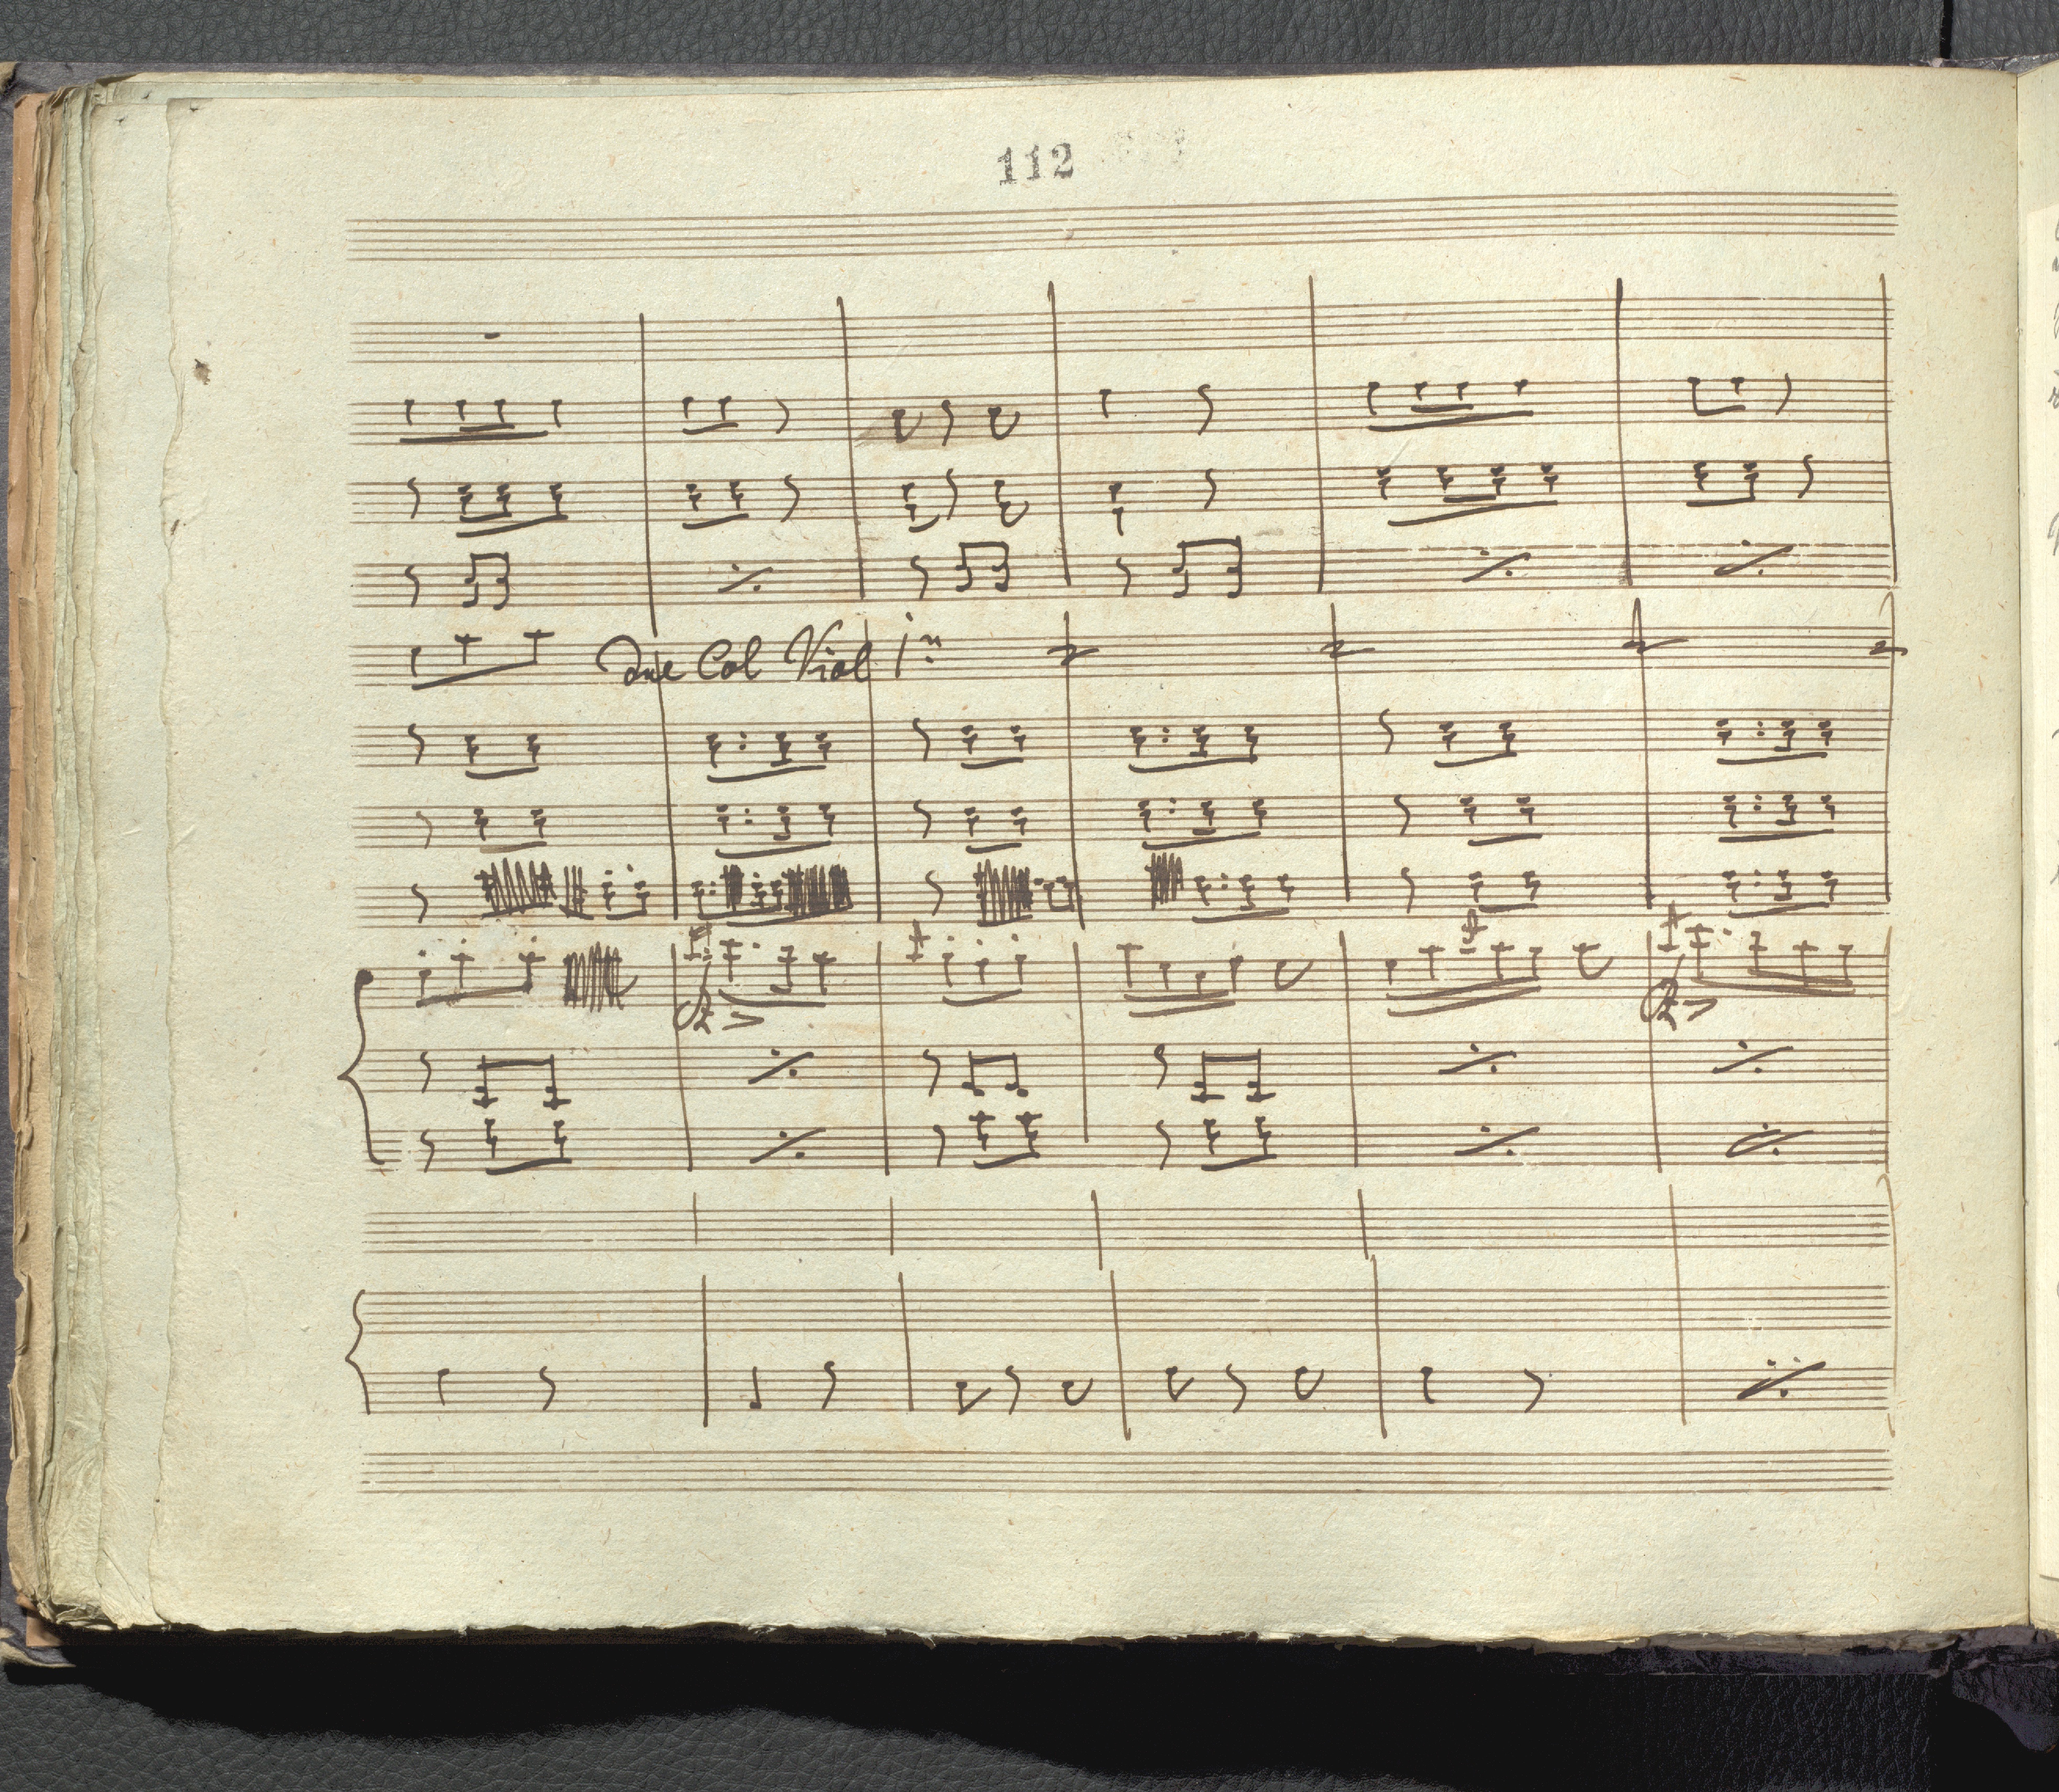 112
Due Col Viol 1º